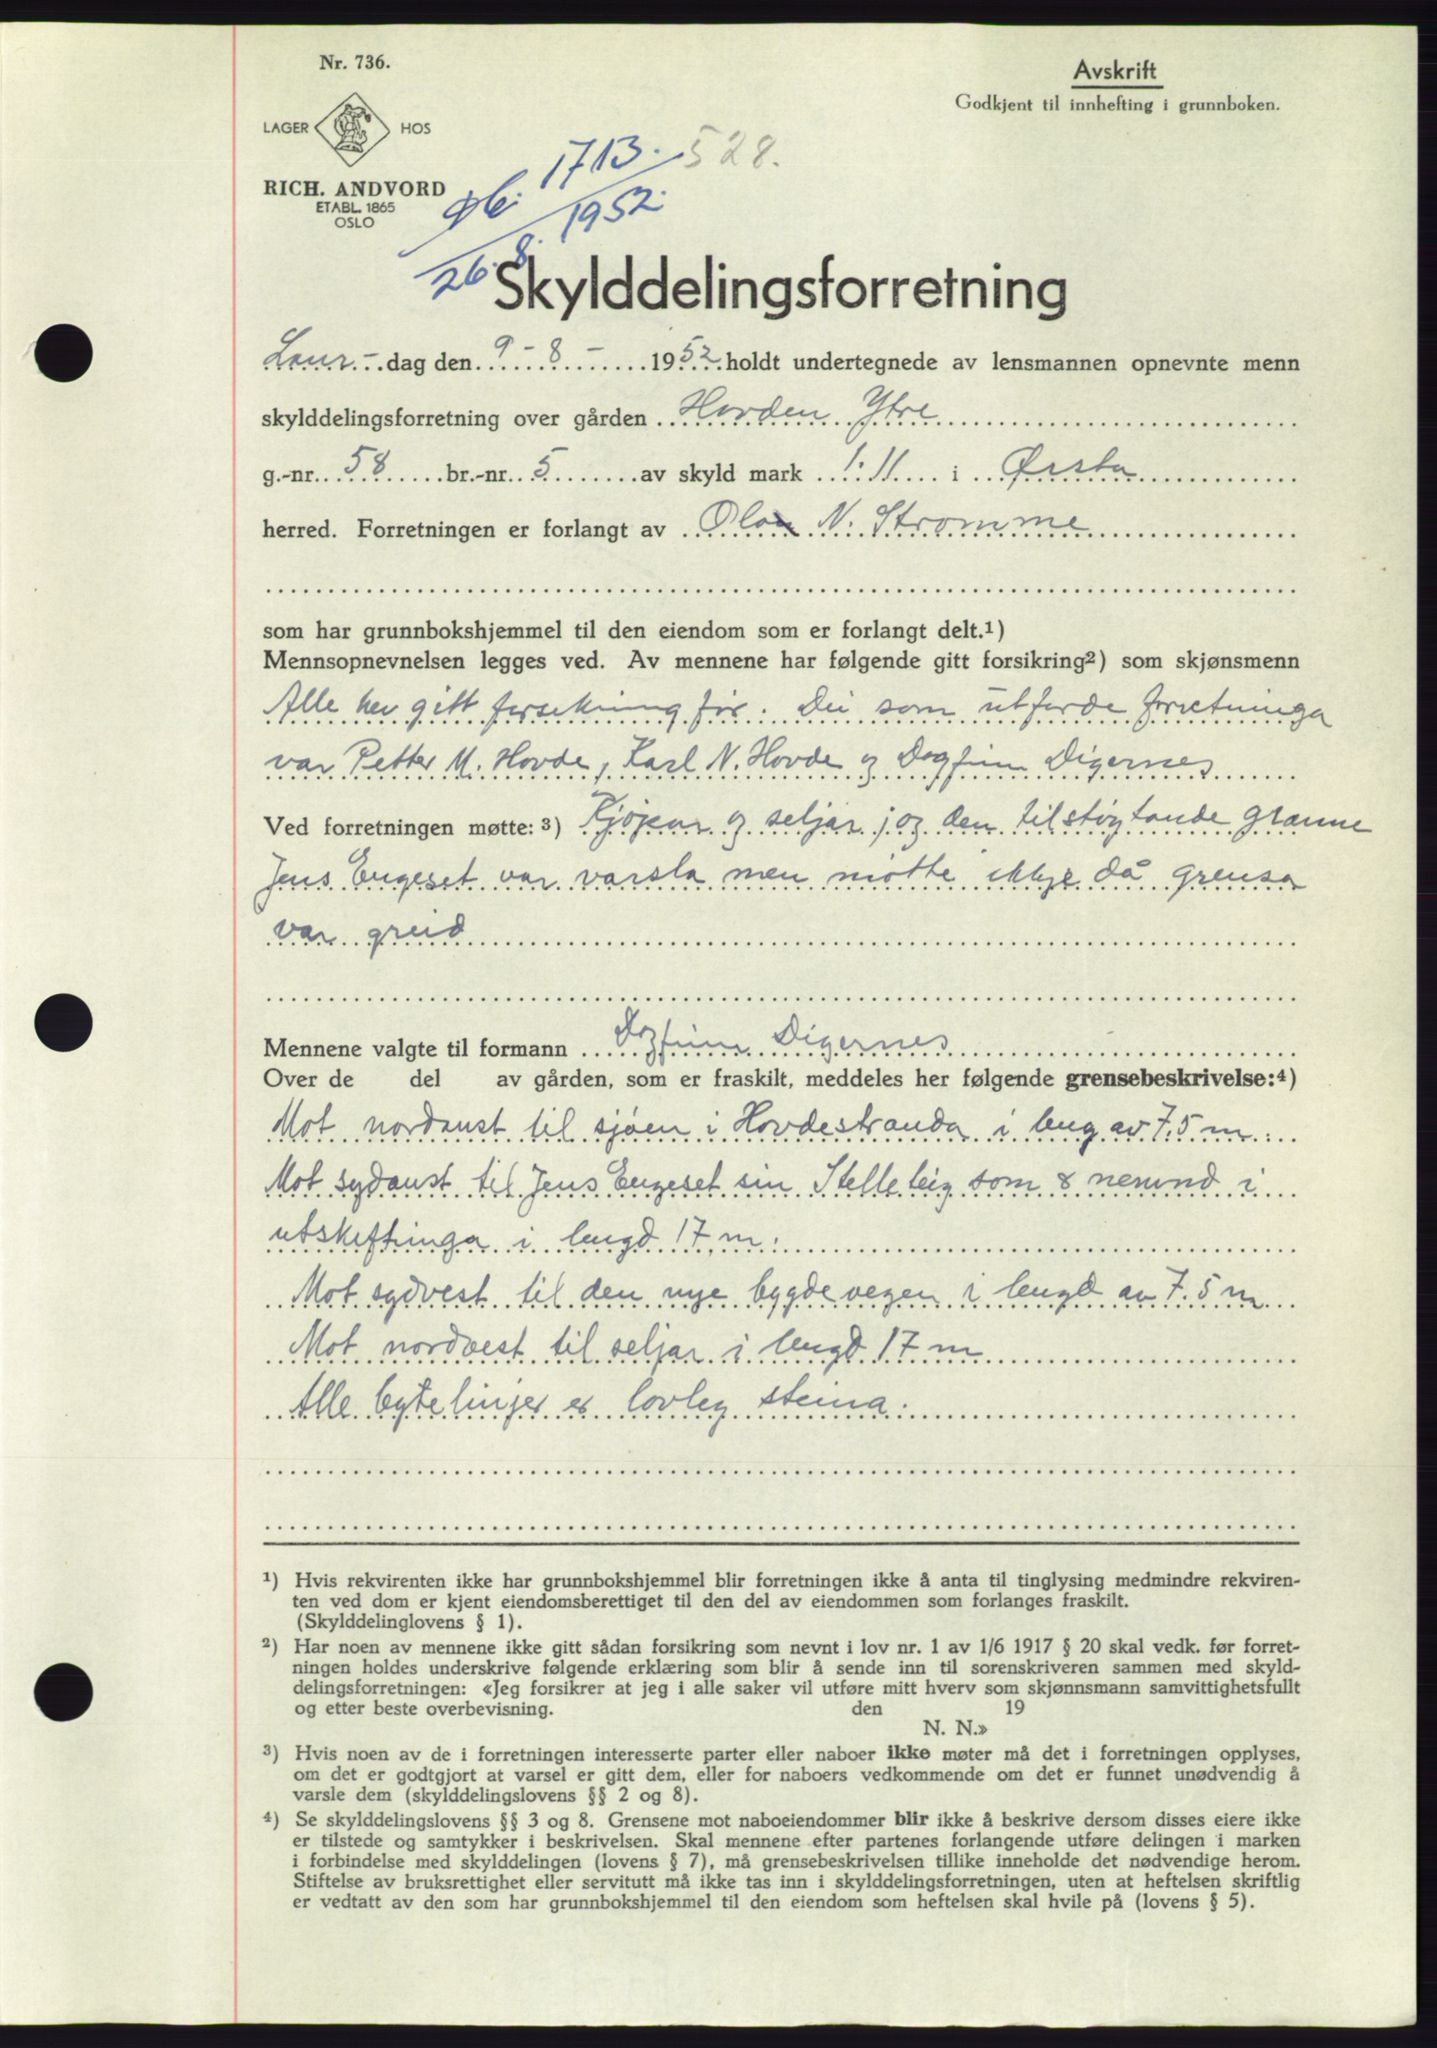 Nr. 736.
Avskrift
Godkjent til innhefting i grunnboken.
LAGER HOS
RICH. ANDVORD
ETABL. 1865
OSLO
528.
1713.
1952
26. 8.
Skylddelingsforretning
Laur- dag den 9 - 8 - 1952 holdt undertegnede av lensmannen opnevnte menn
skylddelingsforretning over gården Hovden Ytre
g.-nr. 58 br.-nr. 5 av skyld mark 1.11 i Ørsta
herred. Forretningen er forlangt av Ola N. Strømme
som har grunnbokshjemmel til den eiendom som er forlangt delt.1)
Mennsopnevnelsen legges ved. Av mennene har følgende gitt forsikring2) som skjønsmenn
Alle hev gitt forsikning før. Dei som utførde forretninga
var Petter M. Hovde, Karl N. Hovde og Dagfinn Digernes
Ved forretningen møtte: 3) Kjøpar og seljar, og den tilstøytande granne
Jens Engeset var varsla men møtte ikkje då grensa
var greid
Mennene valgte til formann Dagfinn Digernes
Over de del av gården, som er fraskilt, meddeles her følgende grensebeskrivelse:4)
Mot nordaust til sjøen i Hovdestranda i leng av 7.5 m.
Mot sydaust til Jens Engeset sin Stelleteig som er nemnd i
utskiftinga i lengd 17 m.
Mot sydvest til den nye bygdevegen i lengd av 7.5 m
Mot nordvest til seljar i lengd 17 m
Alle bytelinjer er lovleg steina.
1) Hvis rekvirenten ikke har grunnbokshjemmel blir forretningen ikke å anta til tinglysing medmindre rekviren-
ten ved dom er kjent eiendomsberettiget til den del av eiendommen som forlanges fraskilt.
(Skylddelinglovens § 1).
2) Har noen av mennene ikke gitt sådan forsikring som nevnt i lov nr. 1 av 1/6 1917 § 20 skal vedk. før forret-
ningen holdes underskrive følgende erklæring som blir å sende inn til sorenskriveren sammen med skyld-
delingsforretningen: «Jeg forsikrer at jeg i alle saker vil utføre mitt hverv som skjønnsmann samvittighetsfullt
og etter beste overbevisning. den 19
N. N.»
3) Hvis noen av de i forretningen interesserte parter eller naboer ikke møter må det i forretningen opplyses,
om det er godtgjort at varsel er gitt dem, eller for naboers vedkommende om det er funnet unødvendig å
varsle dem (skylddelingslovens §§ 2 og 8).
4) Se skylddelingslovens §§ 3 og 8. Grensene mot naboeiendommer blir ikke å beskrive dersom disses eiere ikke
er tilstede og samtykker i beskrivelsen. Skal mennene efter partenes forlangende utføre delingen i marken
i forbindelse med skylddelingen (lovens § 7), må grensebeskrivelsen tillike inneholde det nødvendige herom.
Stiftelse av bruksrettighet eller servitutt må ikke tas inn i skylddelingsforretningen, uten at heftelsen skriftlig
er vedtatt av den som har grunnbokshjemmel til den eiendom som heftelsen skal hvile på (lovens § 5).